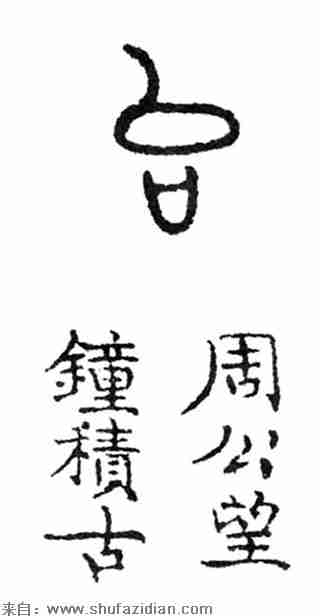 台
周公望
鐘積古
来自：www.shufazidian.com